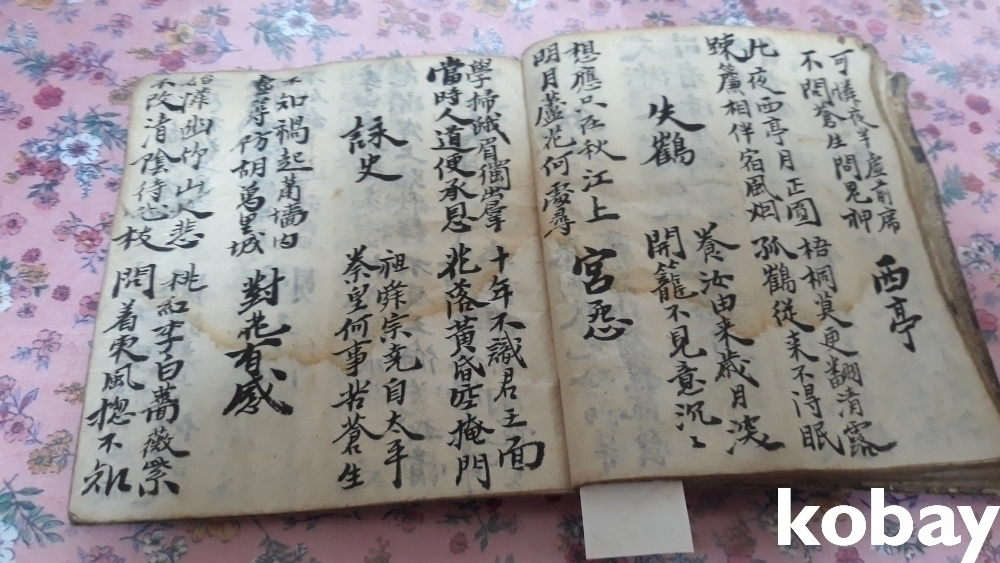 可憐夜半虛前席
不問蒼生問鬼神
西亭
此夜西亭月正圓
疎簾相伴宿風烟
梧桐莫更翻清露
孤鶴從來不得眠
失鶴
養汝由来歲月深
開籠不見意沉〻
想應只在秋江上
明月蘆花何處尋
宮怨
學掃蛾眉獨出羣
當時人道便承恩
十年不識君王面
花落黃昏空掩門
詠史
祖舜宗堯自太平
秦皇何事苦蒼生
不知禍起蕭墻內
虛築防胡萬里城
對花有感
始憐幽竹山
不改清陰待
桃紅李白薔薇紫
問着東風摠不知
kobay